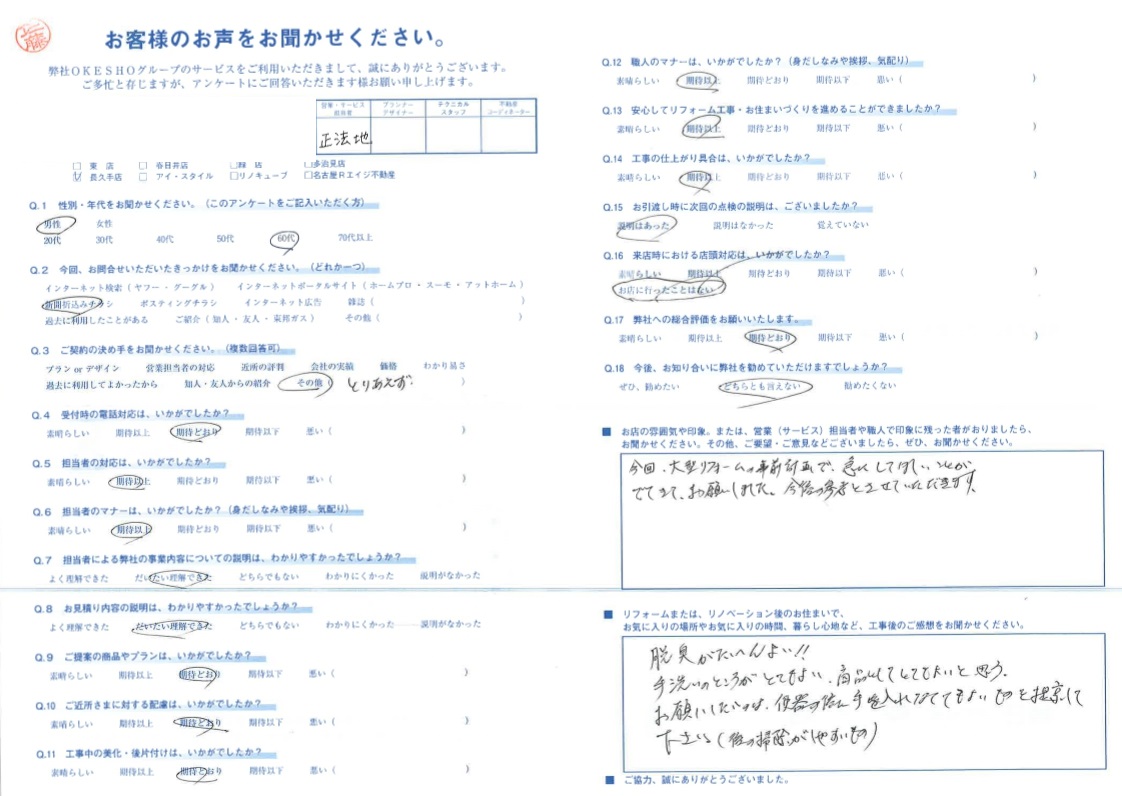 お客様のお声をお聞かせください。
弊社OKESHOグループのサービスをご利用いただきまして、誠にありがとうございます。
ご多忙と存じますが、アンケートにご回答いただきます様お願い申し上げます。
営業・サービス担当者 プランナーデザイナー テクニカルスタッフ 不動産コーディネーター
正法地
□ 東 店 □ 春日井店 □緑 店 □多治見店
☑ 長久手店 □ アイ・スタイル □リノキューブ □名古屋Rエイジ不動産
Q.1 性別・年代をお聞かせください。(このアンケートをご記入いただく方)
男性 女性
20代 30代 40代 50代 60代 70代以上
Q.2 今回、お問合せいただいたきっかけをお聞かせください。(どれか一つ)
インターネット検索(ヤフー・グーグル) インターネットポータルサイト(ホームプロ・スーモ・アットホーム)
新聞折込みチラシ ポスティングチラシ インターネット広告 雑誌( )
過去に利用したことがある ご紹介(知人・友人・東邦ガス) その他( )
Q.3 ご契約の決め手をお聞かせください。(複数回答可)
プラン or デザイン 営業担当者の対応 近所の評判 会社の実績 価格 わかり易さ
過去に利用してよかったから 知人・友人からの紹介 その他( とりあえず )
Q.4 受付時の電話対応は、いかがでしたか?
素晴らしい 期待以上 期待どおり 期待以下 悪い( )
Q.5 担当者の対応は、いかがでしたか?
素晴らしい 期待以上 期待どおり 期待以下 悪い( )
Q.6 担当者のマナーは、いかがでしたか?(身だしなみや挨拶、気配り)
素晴らしい 期待以上 期待どおり 期待以下 悪い( )
Q.7 担当者による弊社の事業内容についての説明は、わかりやすかったでしょうか?
よく理解できた だいたい理解できた どちらでもない わかりにくかった 説明がなかった
Q.8 お見積り内容の説明は、わかりやすかったでしょうか?
よく理解できた だいたい理解できた どちらでもない わかりにくかった 説明がなかった
Q.9 ご提案の商品やプランは、いかがでしたか?
素晴らしい 期待以上 期待どおり 期待以下 悪い( )
Q.10 ご近所さまに対する配慮は、いかがでしたか?
素晴らしい 期待以上 期待どおり 期待以下 悪い( )
Q.11 工事中の美化・後片付けは、いかがでしたか?
素晴らしい 期待以上 期待どおり 期待以下 悪い( )
Q.12 職人のマナーは、いかがでしたか?(身だしなみや挨拶、気配り)
素晴らしい 期待以上 期待どおり 期待以下 悪い( )
Q.13 安心してリフォーム工事・お住まいづくりを進めることができましたか?
素晴らしい 期待以上 期待どおり 期待以下 悪い( )
Q.14 工事の仕上がり具合は、いかがでしたか?
素晴らしい 期待以上 期待どおり 期待以下 悪い( )
Q.15 お引渡し時に次回の点検の説明は、ございましたか?
説明はあった 説明はなかった 覚えていない
Q.16 来店時における店頭対応は、いかがでしたか?
素晴らしい 期待以上 期待どおり 期待以下 悪い( )
お店に行ったことはない
Q.17 弊社への総合評価をお願いいたします。
素晴らしい 期待以上 期待どおり 期待以下 悪い( )
Q.18 今後、お知り合いに弊社を勧めていただけますでしょうか?
ぜひ、勧めたい どちらとも言えない 勧めたくない
■ お店の雰囲気や印象。または、営業(サービス)担当者や職人で印象に残った者がおりましたら、
お聞かせください。その他、ご要望・ご意見などございましたら、ぜひ、お聞かせください。
今回、大型リフォームの事前計画で、急にしてほしいことが
でてきて、お願いしました。今後の参考とさせていただきます。
■ リフォームまたは、リノベーション後のお住まいで、
お気に入りの場所やお気に入りの時間、暮らし心地など、工事後のご感想をお聞かせください。
脱臭がたいへんよい!!
手洗いのところがとてもよい、商品としてとてもよいと思う。
お願いしたいのは、便器の 手を入れなくてもよいものを提案して
下さい(後の掃除がしやすいもの)
■ ご協力、誠にありがとうございました。